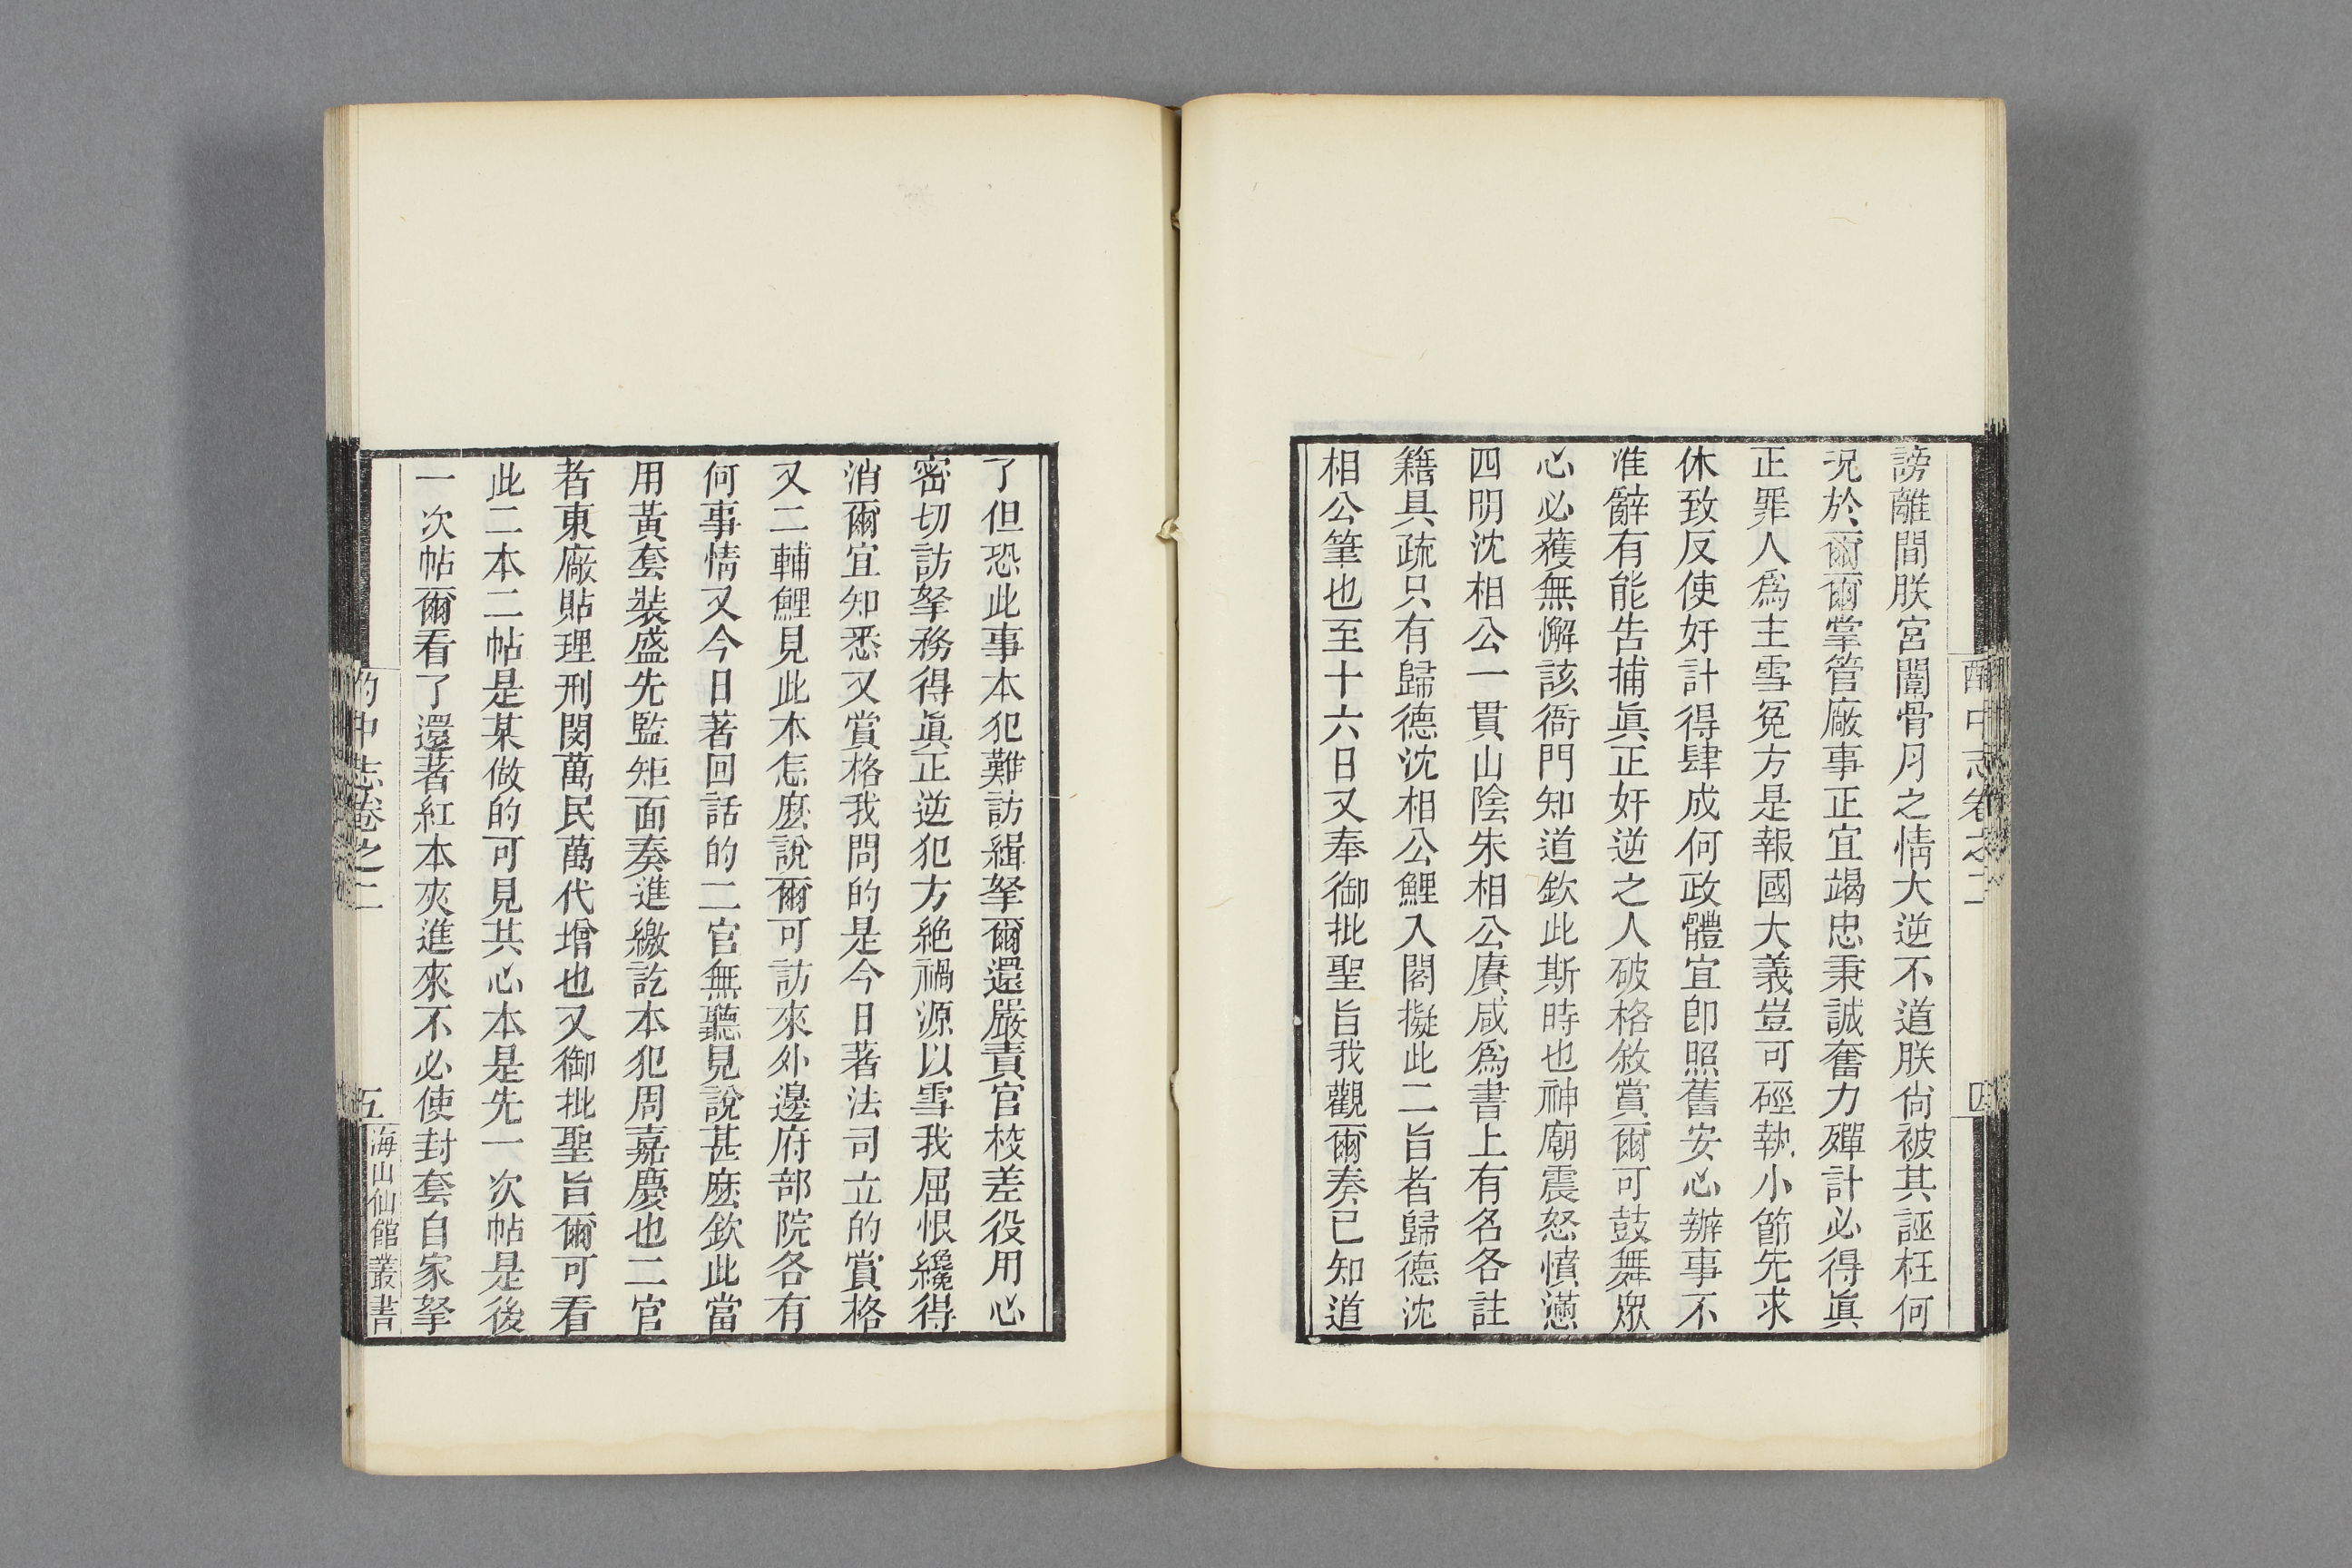 謗離間朕宮闈骨月之情大逆不道朕尙被其誣枉何
况於爾爾掌管廠事正宜竭忠秉誠奮力殫計必得眞
正罪人爲主雪冤方是報國大義豈可硜執小節先求
休致反使奸計得肆成何政體宜卽照舊安心辦事不
准辭有能告捕眞正奸逆之人破格敘賞爾可鼓舞衆
心必獲無懈該衙門知道欽此斯時也神廟震怒憤懣
四明沈相公一貫山陰朱相公賡咸爲書上有名各註
籍具疏只有歸德沈相公鯉入閣擬此二旨者歸德沈
相公筆也至十六日又奉御批聖旨我觀爾奏已知道
了但恐此事本犯難訪緝拏爾還嚴責官校差役用心
密切訪拏務得眞正逆犯方絶禍源以雪我屈恨纔得
消爾宜知悉又賞格我問的是今日著法司立的賞格
又二輔鯉見此本怎麽說爾可訪來外邊府部院各有
何事情又今日著回話的二官無聽見說甚麽欽此當
用黃套裝盛先監矩面奏進繳訖本犯周嘉慶也二官
者東廠貼理刑閔萬民萬代增也又御批聖旨爾可看
此二本二帖是某做的可見其心本是先一次帖是後
一次帖爾看了還著紅本夾進來不必使封套自家拏
酌中志卷之二
五
海山仙館叢書